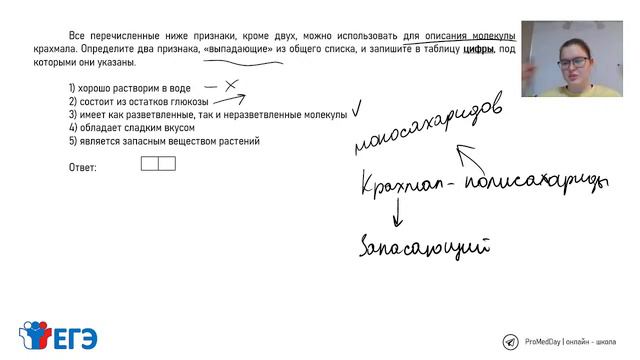 Все перечисленные ниже признаки, кроме двух, можно использовать для описания молекулы
крахмала. Определите два признака, «выпадающие» из общего списка, и запишите в таблицу цифры, под
которыми они указаны.
1) хорошо растворим в воде – X
2) состоит из остатков глюкозы
3) имеет как разветвленные, так и неразветвленные молекулы ✓
4) обладает сладким вкусом
5) является запасным веществом растений
Ответ:
моносахаридов
Крахмал – полисахариды
Запасающий
ЕГЭ
ProMedDay | онлайн - школа